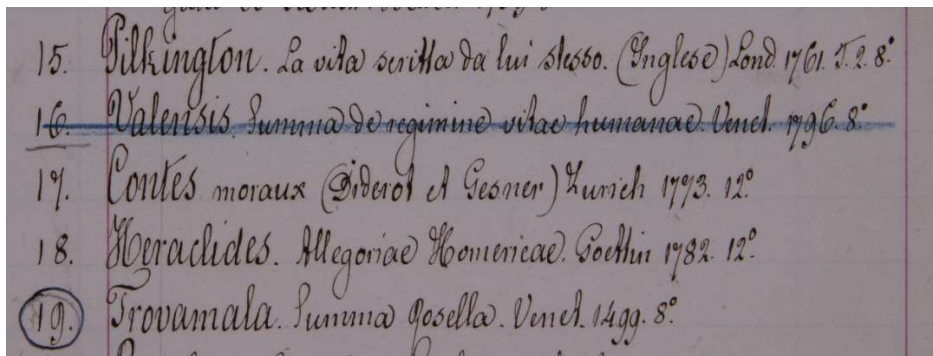 15. Pilkington. La vita scritta da lui stesso. (Inglese) Lond. 1761. T. 2. 8°
16. Valensis. Summa de regimine vitae humanae. Venet. 1796. 8°
17. Contes moraux (Diderot et Gesner) Zurich 1773. 12°
18. Heraclides. Allegoriae Homericae. Goettin 1782. 12°
19. Trovamala. Summa Rosella. Venet. 1499. 8°